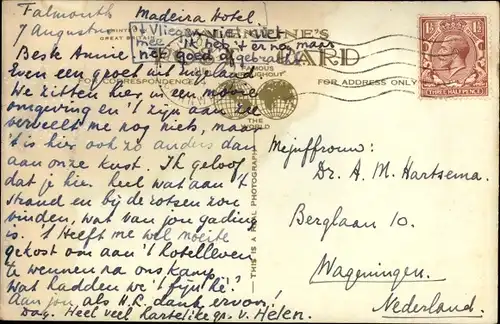 Falmouth Madeira Hotel
7 Augustus
't Vliegen viel niet
mee, ik heb 't er nog maar
net goed afgebracht
PRINTED
GREAT BRITAIN
VALENTINE'S
CARD
FOR CORRESPONDENCE
FOR ADDRESS ONLY
FAMOUS
THROUGHOUT
THE
WORLD
THIS IS A REAL PHOTOGRAPH
THREE HALF PENCE
Beste Annie
Even een groet uit Engeland
We zitten hier in een mooie
omgeving en 't zijn aan zee
verveelt me nog niets, maar
't is hier ook zo anders dan
aan onze kust. Ik geloof
dat je hier heel wat aan 't
strand en bij de rotsen zou
vinden, wat van jou gading
is. 't Heeft me wel moeite
gekost om aan 't hotelleven
te wennen na ons kamp
Wat hadden we 't fijn hè!
Aan jou als H.L. dank ervoor!
Dag. Heel veel hartelijke gr. v. Helen.
Mejuffrouw:
Dr. A. M. Hartsema.
Berglaan 10.
Wageningen.
Nederland.